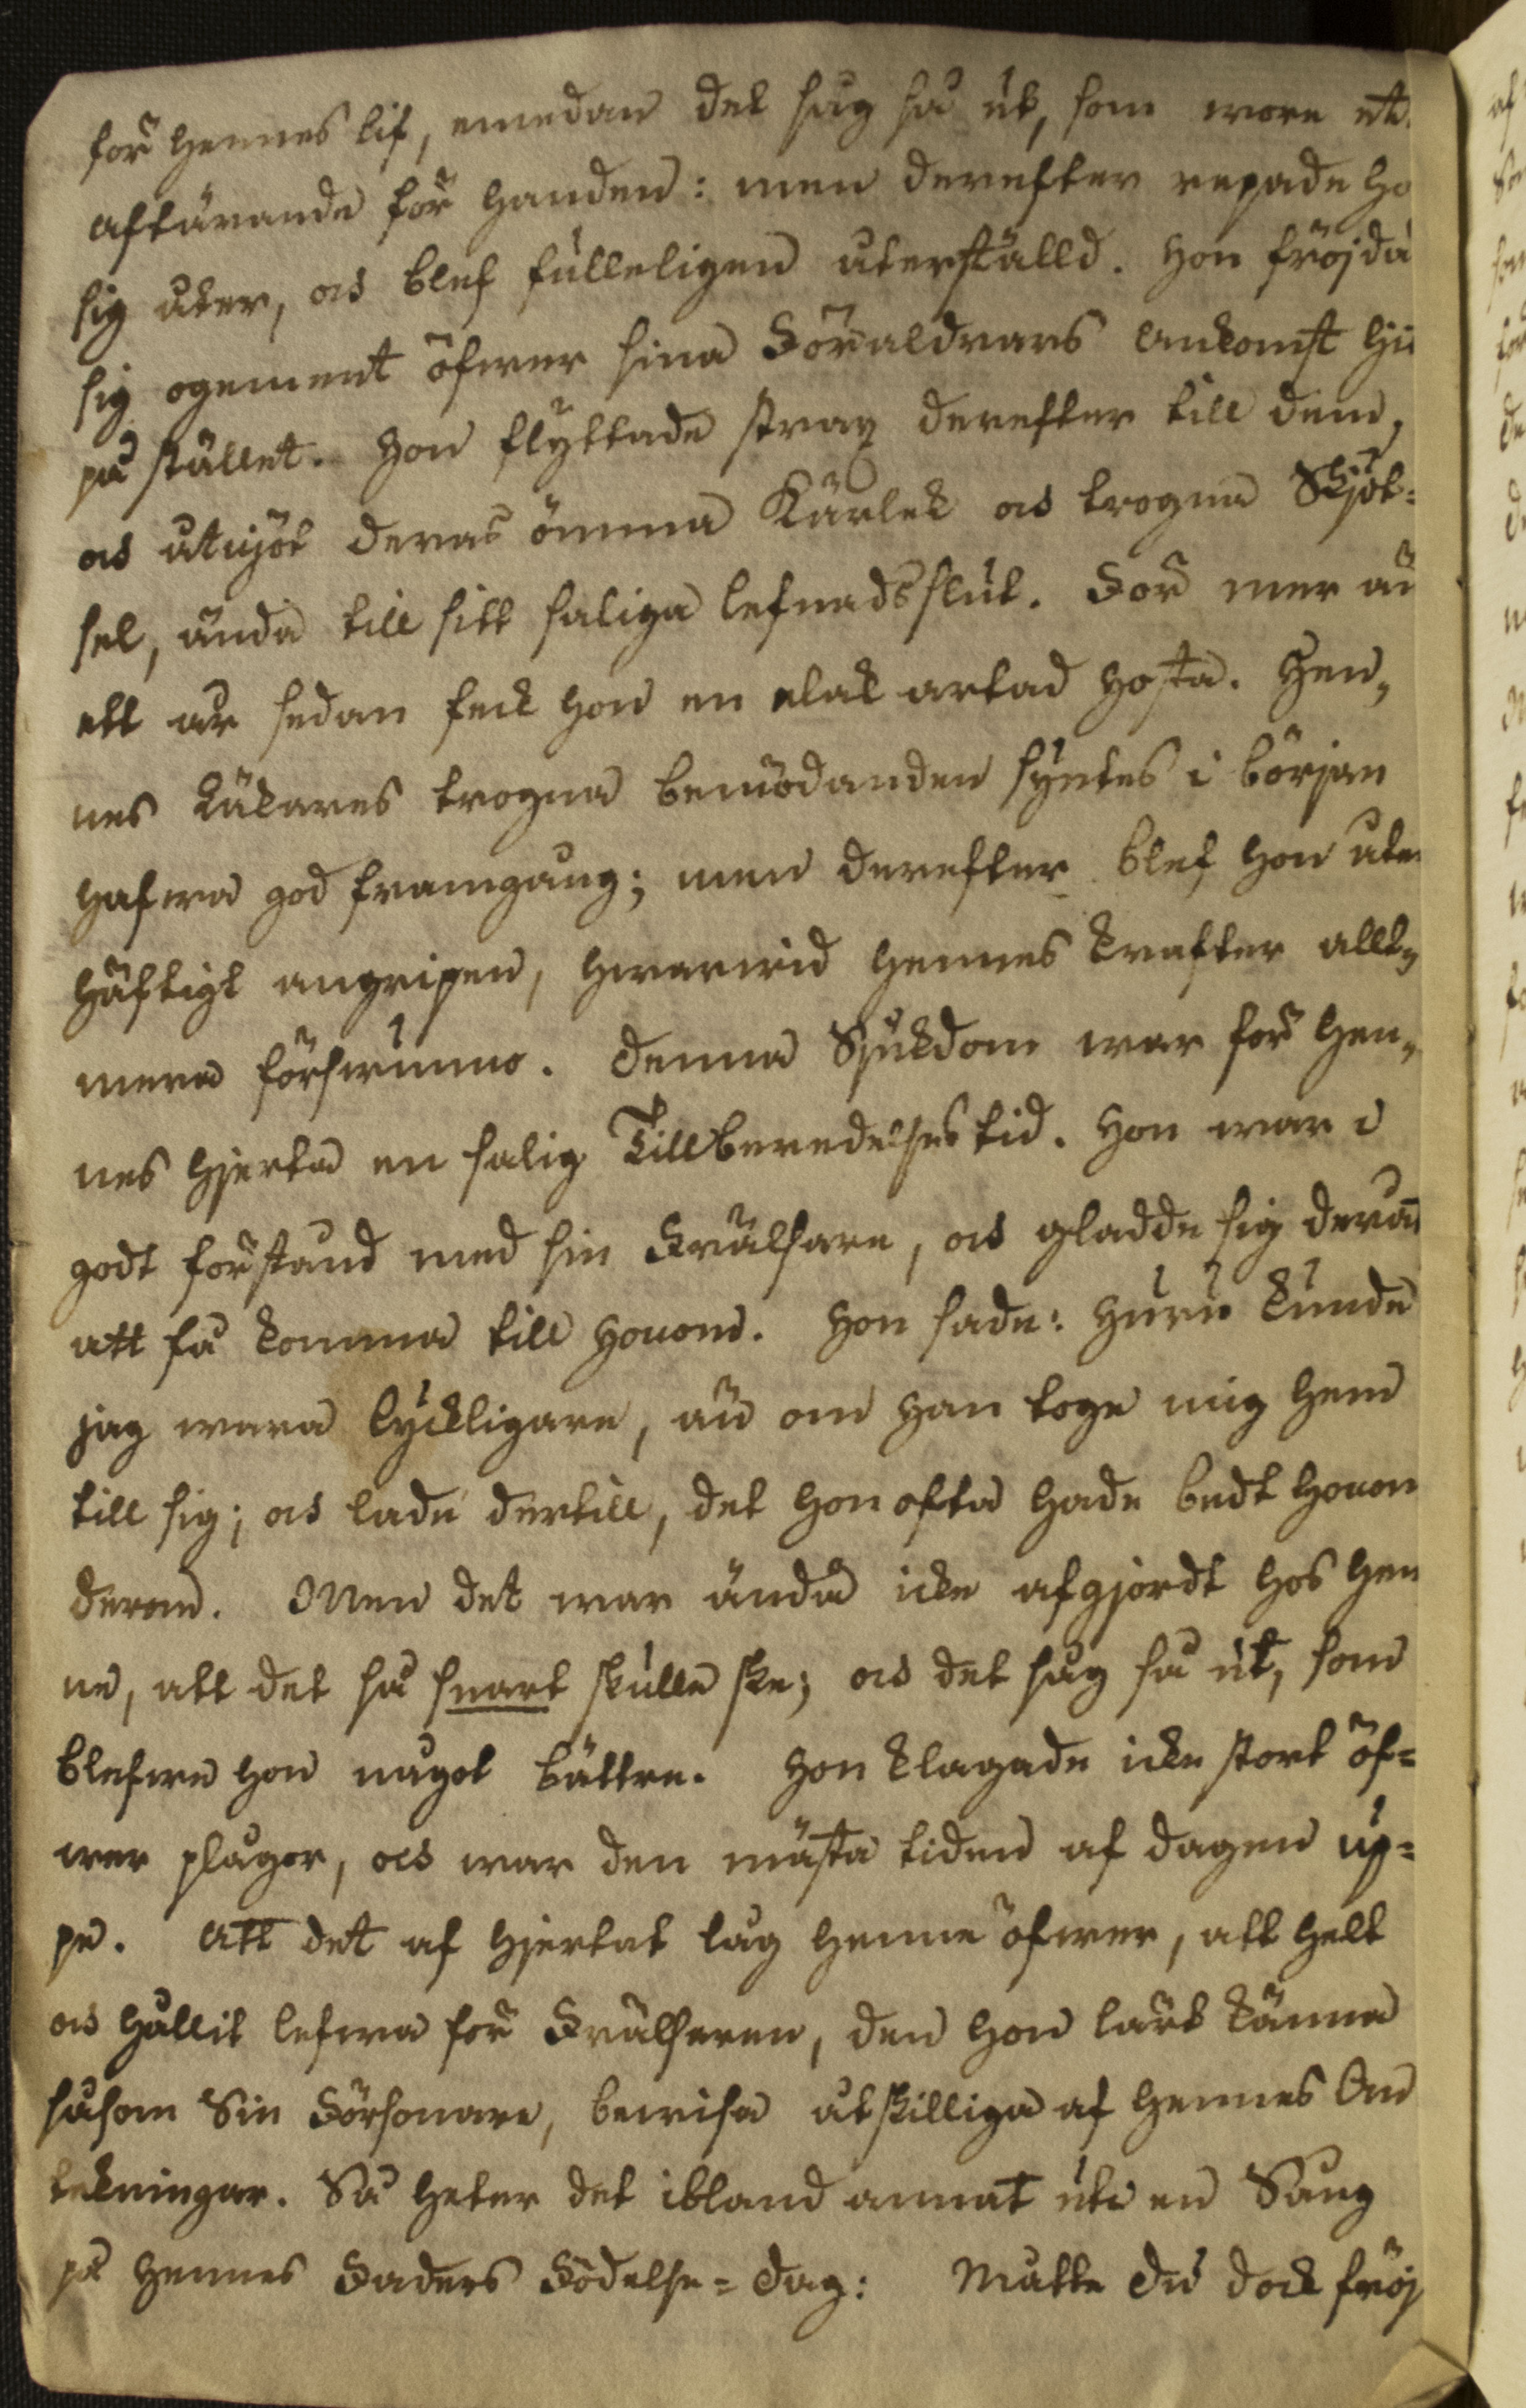 för hennes lif, emedan det såg så ut, som wore et
aftärande för handen: men derefter repade ho
sig åter, os blef fulleligen återställd. Hon fröjda
sig ogement öfwer sina Föräldrars Ankomst hit
på stället. Hon flyttade strax derefter till dem,
os åtnjöt deras ömma Kärlek os trogna Skjöt=
sel, ända till sitt saliga lefnadsslut. För mer än
ett år sedan feck hon en elak artad hosta. Hen,
nes Läkares trogna bemödanden syntes i början
hafwa god framgång; men derefter blef hon åter
häftigt angripen, hwarwid hennes krafter allt,
mera förswunno. Denna Sjukdom war för hen,
nes hjerta en salig Tillberedelses tid. Hon war i
godt förstånd med sin Frälsare, os gladde sig deråt
att få komma till honom. Hon sade: Huru kunde
jag wara lyckligare, än om Han toge mig hem
till sig; os lade dertill, det hon ofta hade bedt honom
derom. Men det war ändå icke afgjordt hos hen
ne, att det så snart skulle ske; os det såg så ut, som
blefwe hon något bättre. Hon klagade icke stort öf=
wer plågor, os war den mästa tiden af dagen up=
pe. Att det af hjertat låg henne öfwer, att helt
os hållit lefwa för Frälsaren, den hon lärt känna
såsom Sin Försonare, bewisa åtskilliga af hennes An
tekningar. Så heter det ibland annat uti en Sång
på hennes Faders Födelse=dag: Måtte Du dock fröj